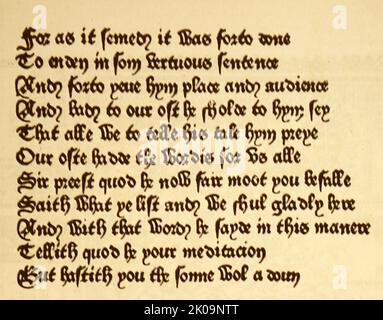 For as it semedy it was forto done
To enden in som vertuous sentence
Andy forto yeue hym place andy audience
Andy bady to our ost he sholde to hym sey
That alle we to telle his tale hym preye
Our oste hadde the wordis for vs alle
Sir preest quod he now fair moot you befalle
Saith what ye list andy we shul gladly here
Andy with that wordy he sayde in this manere
Tellith quod he your meditacion
But hastith you the sonne wol a doun
alamy
Image ID: 2K09NTT
www.alamy.com